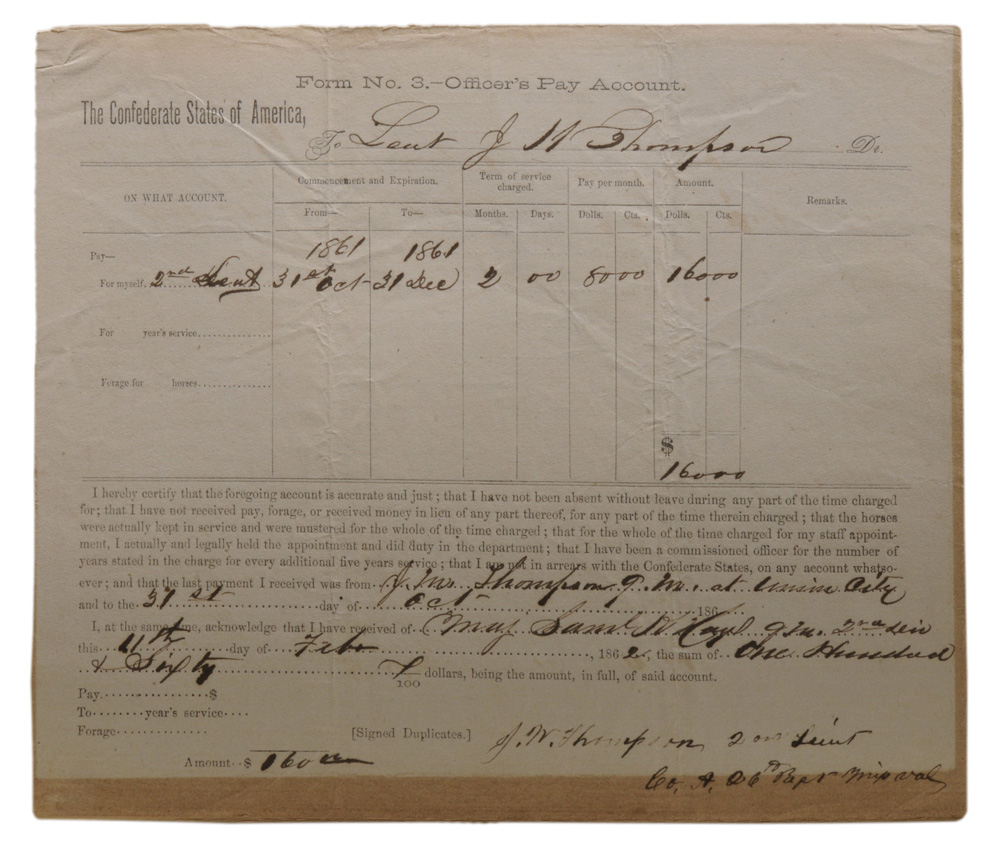 Form No. 3.—Officer's Pay Account.
The Confederate States of America,
To Leut J W Thompson Dr.
ON WHAT ACCOUNT. Commencement and Expiration. Term of service charged. Pay per month. Amount. Remarks.
From— To— Months. Days. Dolls. Cts. Dolls. Cts.
Pay— 1861 1861
For myself. 2nd Lieut 31st Oct 31 Dec 2 00 80 00 160 00
For year's service
Forage for horses
$
160 00
I hereby certify that the foregoing account is accurate and just; that I have not been absent without leave during any part of the time charged
for; that I have not received pay, forage, or received money in lieu of any part thereof, for any part of the time therein charged; that the horses
were actually kept in service and were mustered for the whole of the time charged; that for the whole of the time charged for my staff appoint-
ment, I actually and legally held the appointment and did duty in the department; that I have been a commissioned officer for the number of
years stated in the charge for every additional five years service; that I am not in arrears with the Confederate States, on any account whatso-
ever; and that the last payment I received was from J. M. Thompson q. M. at Union City
and to the 31st day of Oct 186
I, at the same time, acknowledge that I have received of Maj Saml qm. 2nd
this 11th day of Feb , 1862, the sum of One Hundred
& Sixty /100 dollars, being the amount, in full, of said account.
Pay $
To year's service
Forage
[Signed Duplicates.] J. W. Thompson 2nd Lieut
Amount $ 160 00
Co. A. 26th Regt Miss vol